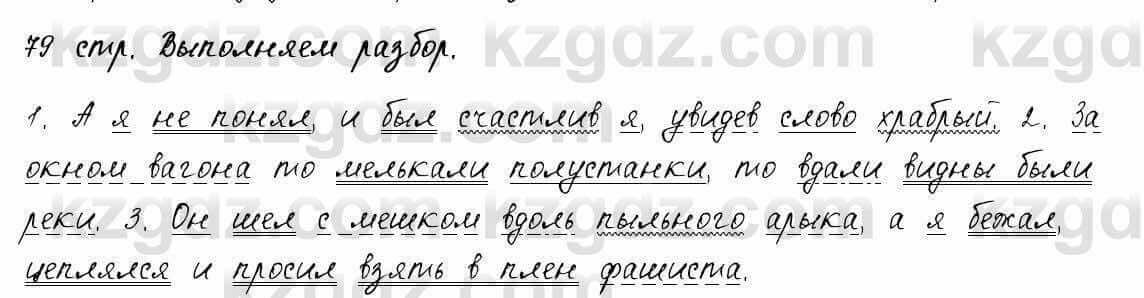 79 стр. Выполняем разбор.
1. А я не понял, и был счастлив я, увидев слово храбрый. 2. За
окном вагона то мелькали полустанки, то вдали видны были
реки. 3. Он шел с мешком вдоль пыльного арыка, а я бежал,
цеплялся и просил взять в плен фашиста.
kzgdz.com kzgdz.com